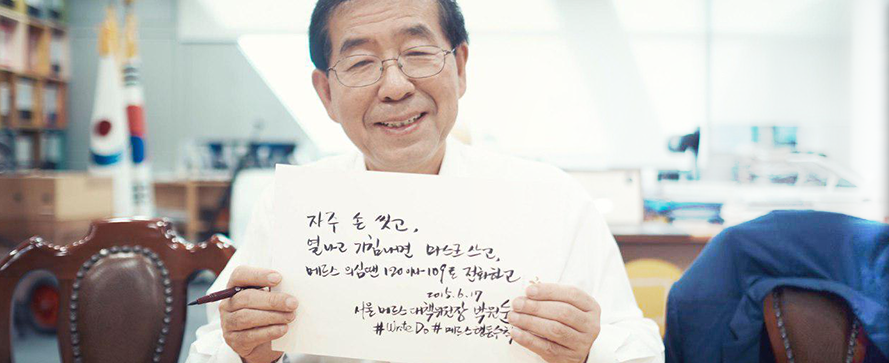 자주 손 씻고,
열나고 기침나면 마스크 쓰고,
메르스 의심땐 120이나 109로 전화하고
2015.6.17
서울메르스대책위원장 박원순
#WriteDo #메르스행동수칙